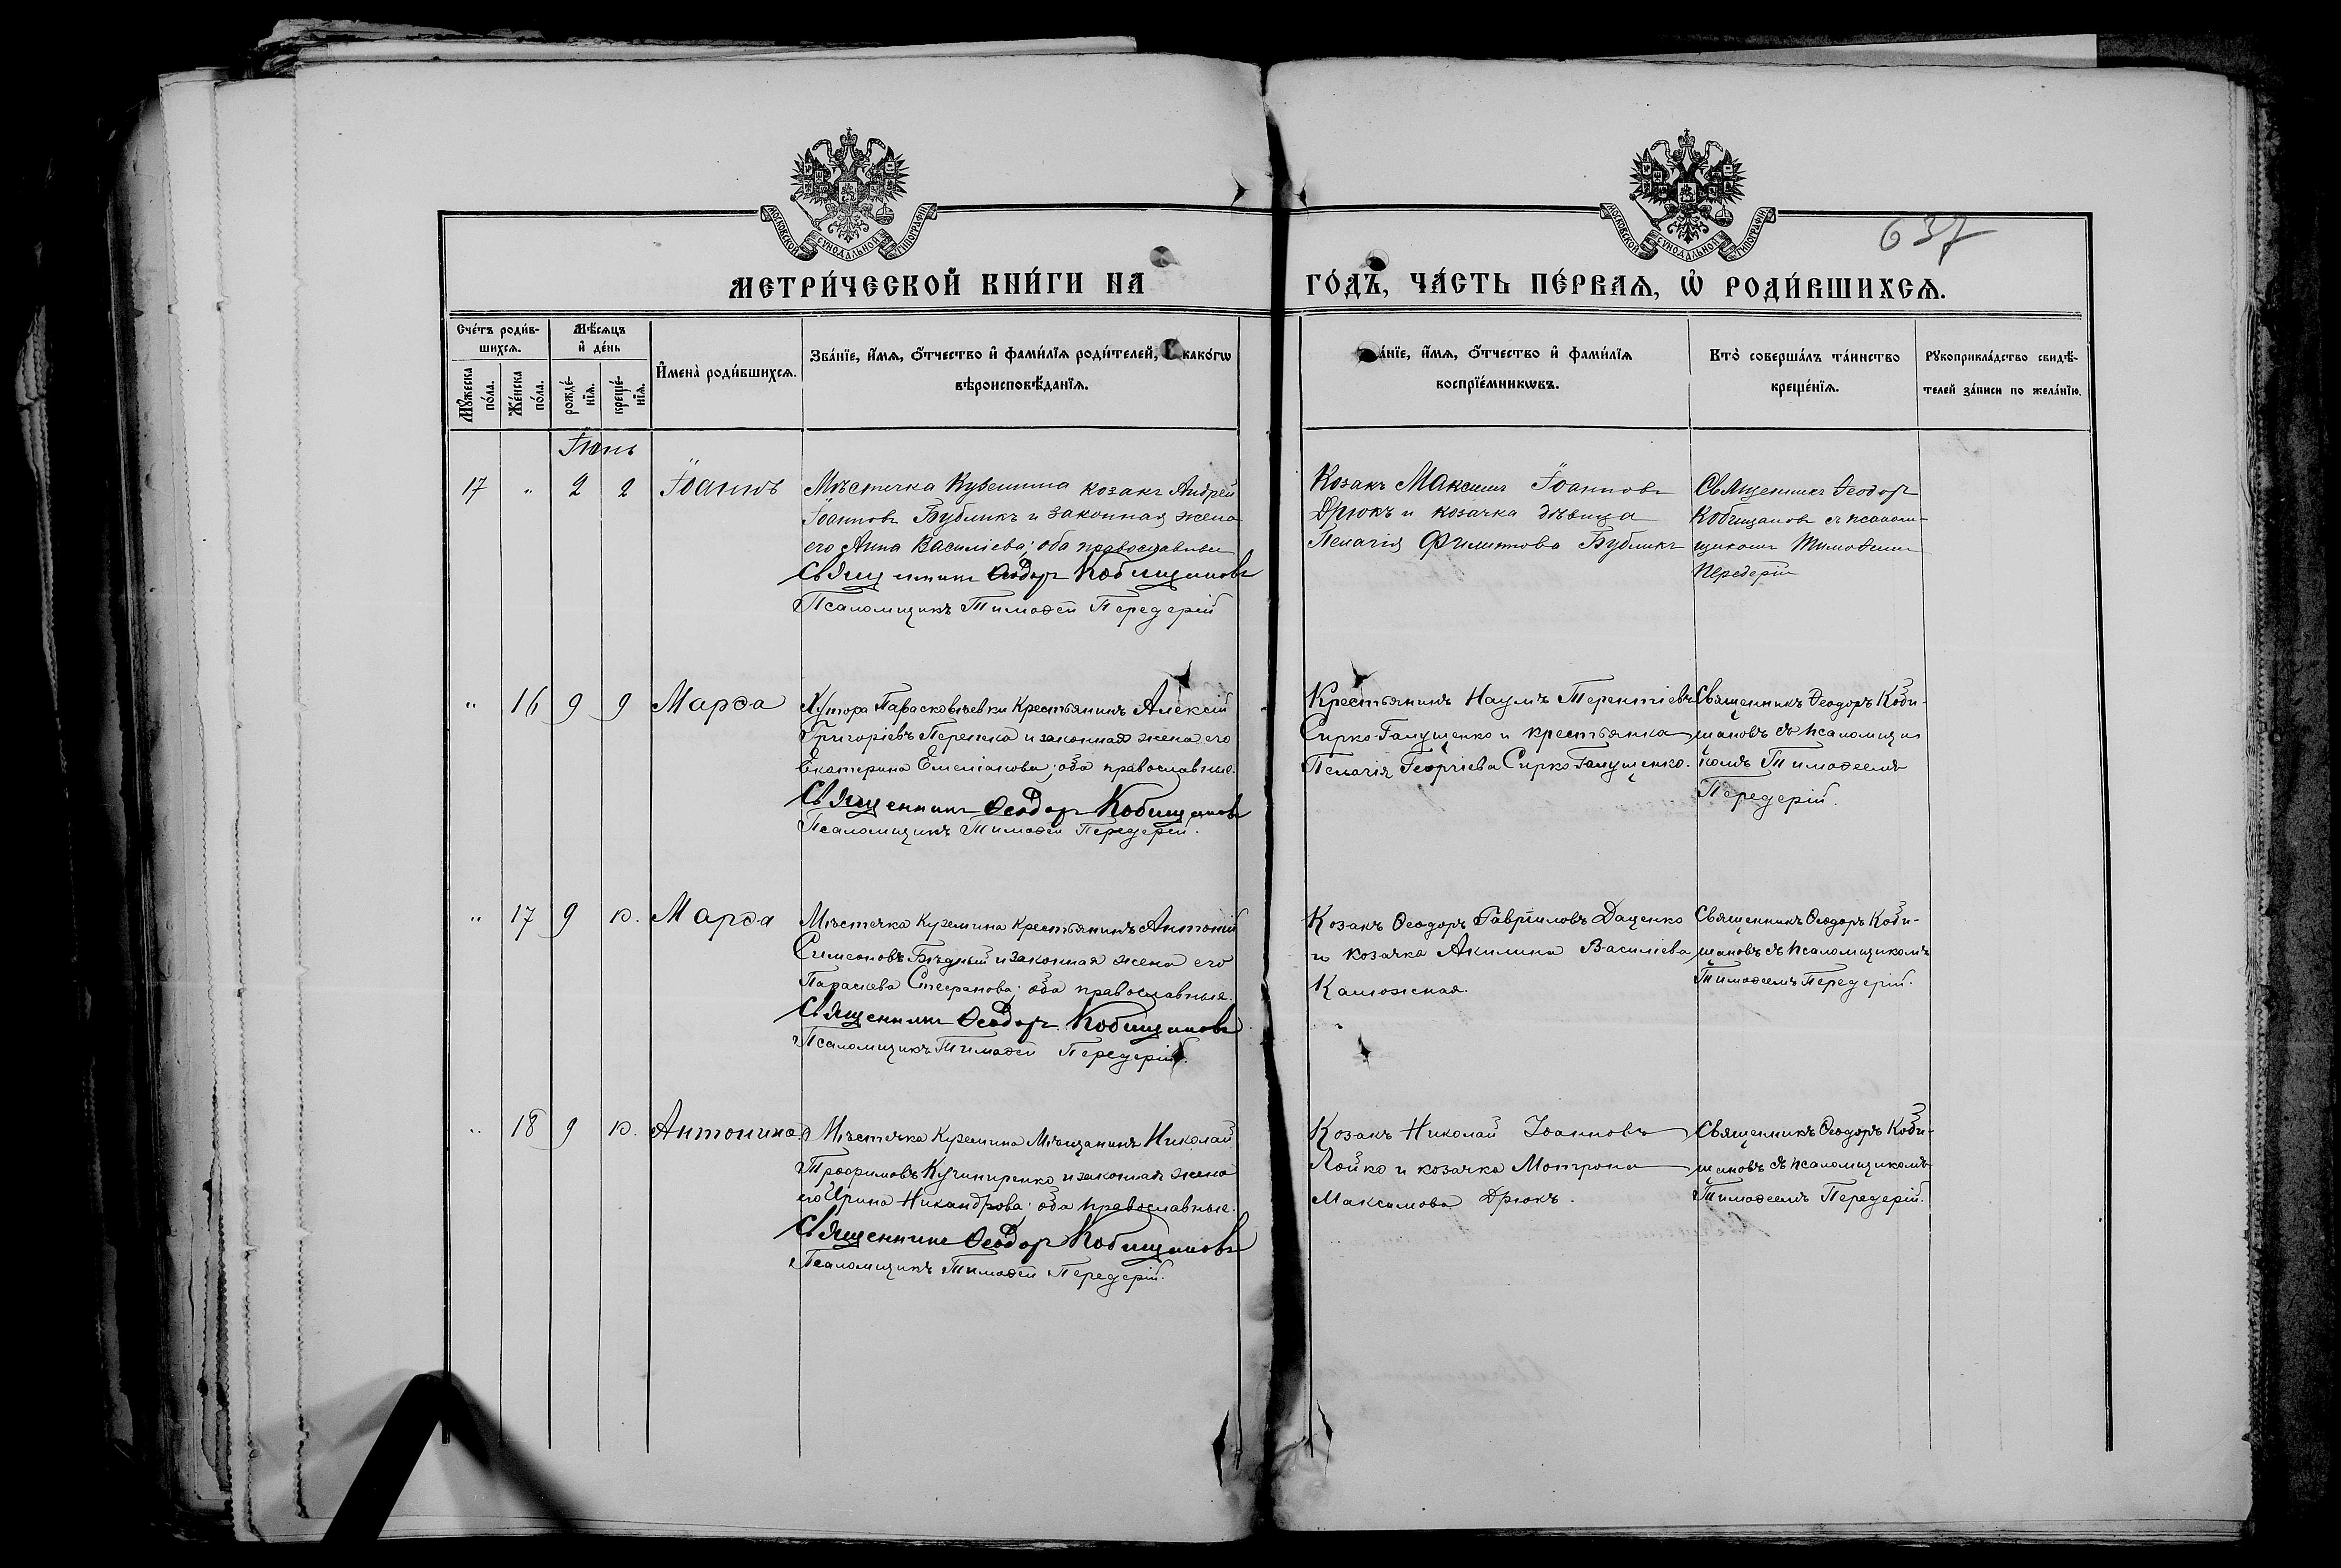 МОСКОВСКОЙ СѴНОДАЛЬНОЙ ТИПОГРАФІИ
МОСКОВСКОЙ СѴНОДАЛЬНОЙ ТИПОГРАФІИ
637
МЕТРИ́ЧЕСКОЙ КНИ́ГИ НА
ГО́ДЪ, ЧА́СТЬ ПЕ́РВАѦ, Ѡ҆ РОДИ́ВШИХСѦ.
Сче́тъ роди́в-
шихсѧ.
Мѣ́сѧцъ
и҆ де́нь
Мꙋ́жеска
по́ла.
Же́нска
по́ла.
рожде́-
нїѧ.
креще́-
нїѧ.
И҆мена̀ роди́вшихсѧ.
Зва́нїе, и҆́мѧ, о҆́тчество и҆ фами́лїѧ роди́телей, како́гѡ
вѣроисповѣ́данїѧ.
а́нїе, и҆́мѧ, о҆́тчество и҆ фами́лїѧ
воспрїе́мникѡвъ.
Кто̀ соверша́лъ та́инство
креще́нїѧ.
Рꙋкоприкла́дство свидѣ́-
телей за́писи по жела́нїю.
Іюнь
17 " 2 2 Іоаннъ
Мѣстечка Куземина козакъ Андрей
Іоанновъ Бубликъ и законная жена
его Анна Василіева; оба православные
Священникъ Ѳеодоръ Кобищановъ
Псаломщикъ Тимоѳей Передерій
Козакъ Максимъ Іоанновъ
Дрюкъ и козачка дѣвица
Пелагія Филиппова Бубликъ
Священникъ Ѳеодоръ
Кобищановъ съ псалом-
щикомъ Тимоѳеемъ
Передерій
" 16 9 9 Марѳа
Хутора Парасковѣевки Крестьянинъ Алексій
Григоріевъ Перепека и законная жена его
Екатерина Емеліанова; оба православные.
Священникъ Ѳеодоръ Кобищановъ
Псаломщикъ Тимоѳей Передерій.
Крестьянинъ Наумъ Терентіевъ
Сирко-Галущенко и крестьянка
Пелагія Георгіева Сирко Галущенко.
Священникъ Ѳеодоръ Коби-
щановъ съ псаломщи
комъ Тимоѳеемъ
Передерій.
" 17 9 10. Марѳа
Мѣстечка Куземина Крестьянинъ Антоній
Симеоновъ Бѣдный и законная жена его
Параскева Стефанова; оба православные.
Священникъ Ѳеодоръ Кобищановъ
Псаломщикъ Тимоѳей Передерій.
Козакъ Ѳеодоръ Гавріиловъ Даценко
и козачка Акилина Василіева
Калюжная.
Священникъ Ѳеодоръ Коби-
щановъ съ псаломщикомъ
Тимоѳеемъ Передерій.
" 18 9 10. Антонина
Мѣстечка Куземина Мѣщанинъ Николай
Трофимовъ Кучиниренко и законная жена
его Ирина Никандрова; оба православные.
Священникъ Ѳеодоръ Кобищановъ
Псаломщикъ Тимоѳей Передерій.
Козакъ Николай Іоанновъ
Лойко и козачка Мотрона
Максимова Дрюкъ.
Священникъ Ѳеодоръ Коби-
щановъ съ псаломщикомъ
Тимоѳеемъ Передерій.